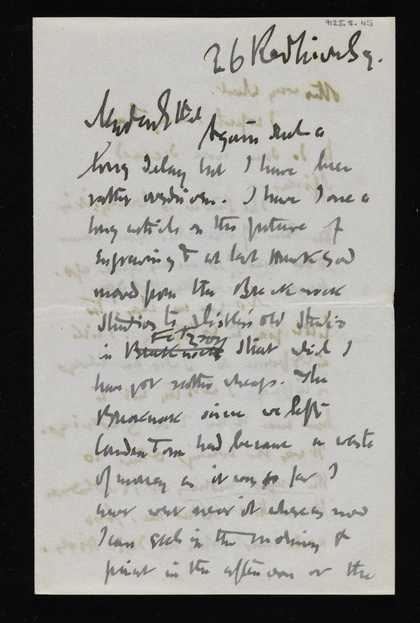 26 Red Lion Sq.
My dear Ethel
Again such a
long delay but I have been
rather overdriven. I have done a
long article on the future of
Engraving & at last thank God
moved from the Brecknock
Studios to Sickert's old studio
Fitzroy
in Brecknock Street which I
have got rather cheap. The
Brecknock since we left
Camden Town had become a waste
of money as it was so far I
never went near it whereas now
I can etch in the morning &
paint in the afternoon or the